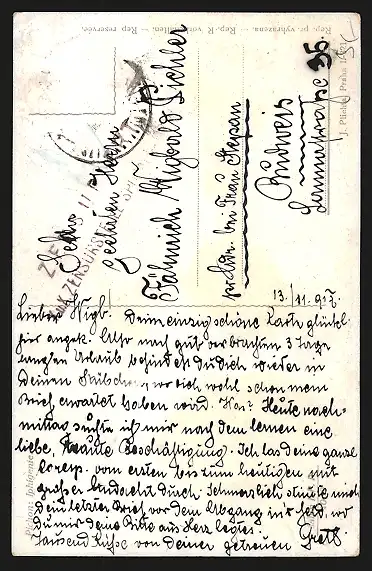 Rep. pr. vyhrazena. — Rep.-R. vorbehalten. — Rep. reservée.
Sehr
Geehrten Herrn
Fähnrich Wigbald Pichler
bei Frau Stepan
Budweis
35.
J. Plichta Praha I.
13./11. 917.
Lieber Wigb. Deine einzig schöne Karte glückl.
für angek. Also nach gut verbrachten 3 tägg
Urlaub befindest du dich wieder in
deinem Stübchen, wo dich wohl schon mein
Brief erwartet haben wird. Heute nach-
mittag suchte ich mir nach dem lernen eine
liebe, traute Beschäftigung. Ich las deine ganze
Corresp. vom ersten bis zum heutigen mit
großer Andacht durch. Schmerzlich stimmte mich
dein letzter Brief vor dem Abgang in's Feld, wo
du mir deine Bitte ans Herz legtest.
Tausend Küsse von deiner getreuen Gretl